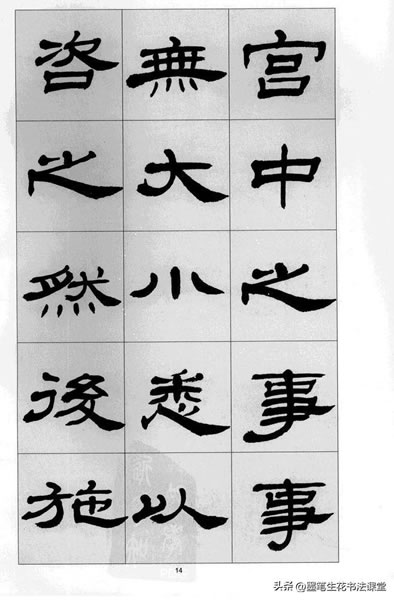 宫中之事事
無大小悉以
咨之然後施
14
头条@墨笔生花书法课堂